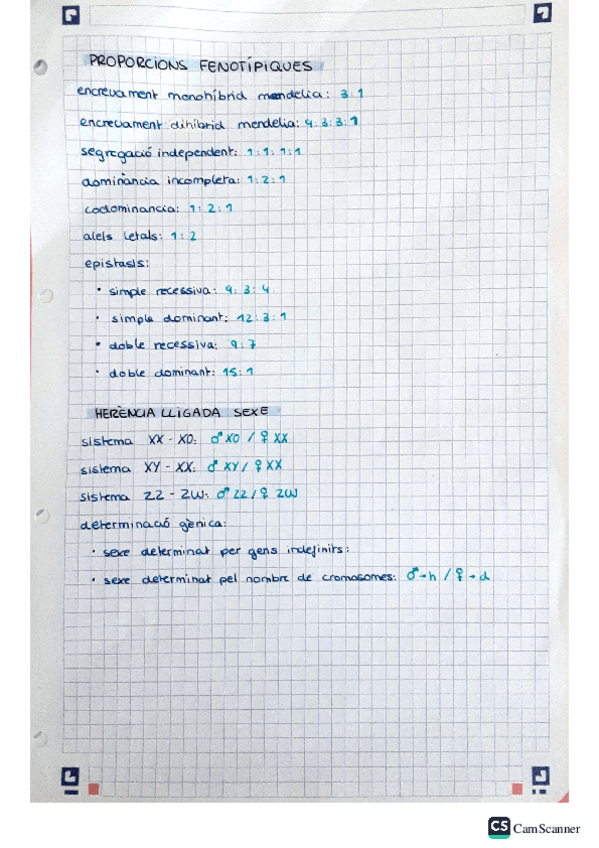 PROPORCIONS FENOTÍPIQUES
encreuament monohíbrid mendelia: 3:1
encreuament dihíbrid mendelia: 9:3:3:1
segregació independent: 1:1:1:1
dominància incompleta: 1:2:1
codominancia: 1:2:1
alels letals: 1:2
epistasis:
• simple recessiva: 9:3:4
• simple dominant: 12:3:1
• doble recessiva: 9:7
• doble dominant: 15:1
HERÈNCIA LLIGADA SEXE
sistema XX - XO: ♂ XO / ♀ XX
sistema XY - XX: ♂ XY / ♀ XX
sistema ZZ - ZW: ♂ ZZ / ♀ ZW
determinació gènica:
• sexe determinat per gens indefinits:
• sexe determinat pel nombre de cromosomes: ♂→h / ♀→d
CS CamScanner